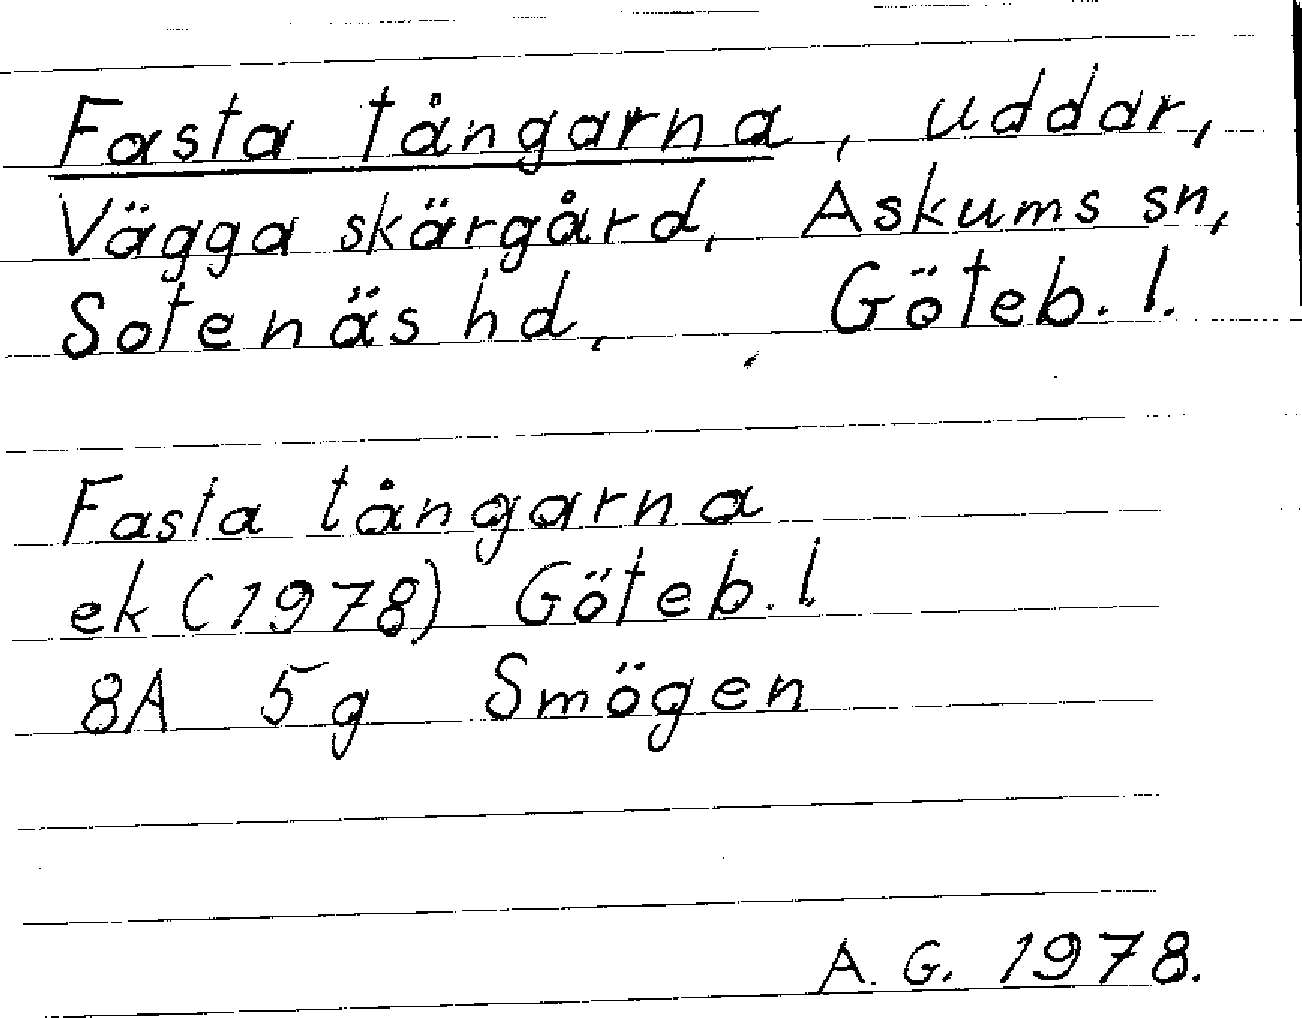 Fasta tångarna, uddar,
Vägga skärgård, Askums sn,
Sotenäs hd, Göteb. l.
Fasta tångarna
ek (1978) Göteb. l
8A 5g Smögen
A. G. 1978.